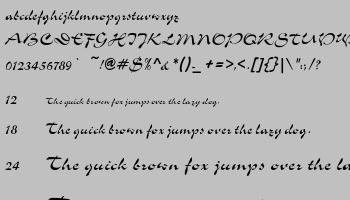 abcdefghijklmnopqrstuvwxyz
ABCDEFGHIJKLMNOPQRSTUVW
0123456789` ~!@#$%^&*()_ +=>,<.[]{}|\":;/?
12 The quick brown fox jumps over the lazy dog.
18 The quick brown fox jumps over the lazy dog.
24 The quick brown fox jumps over the la